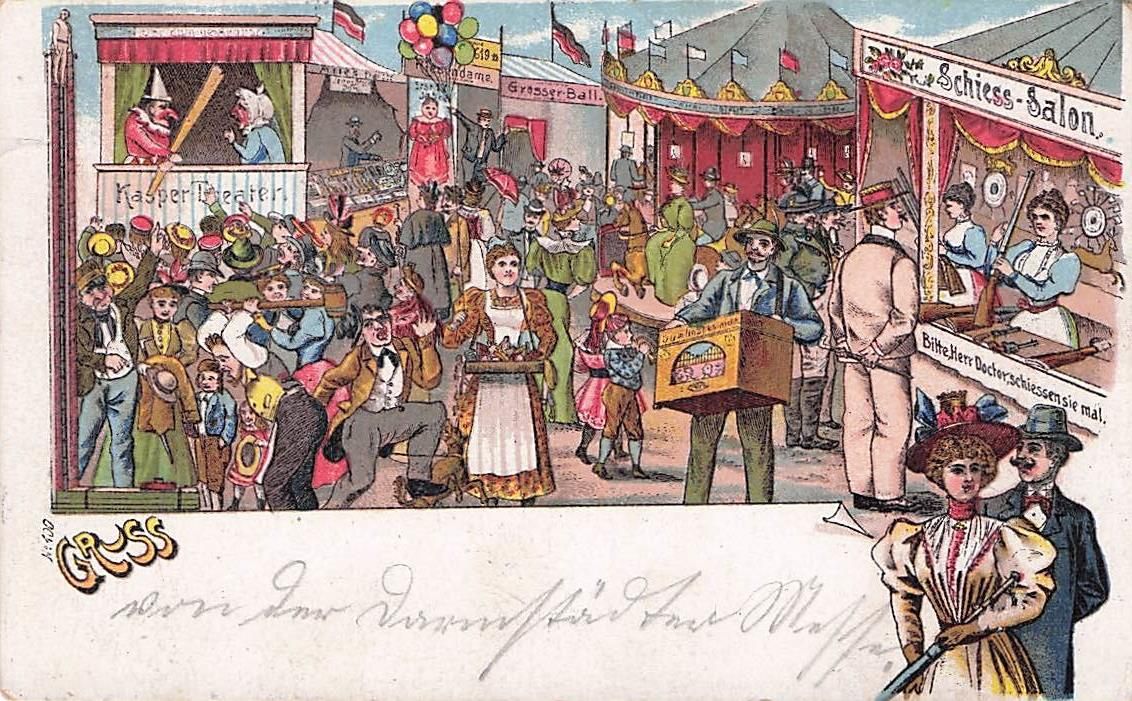 Kasper Theater.
619 ℔
Grosser-Ball.
Schiess-Salon.
Bitte, Herr Doctor, schiessen sie mal.
No. 400
GRUSS
von der Darmstädter Messe